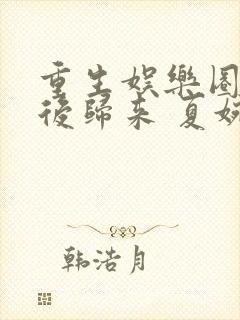 重生娱樂圈
後歸来 夏婉
韩浩月